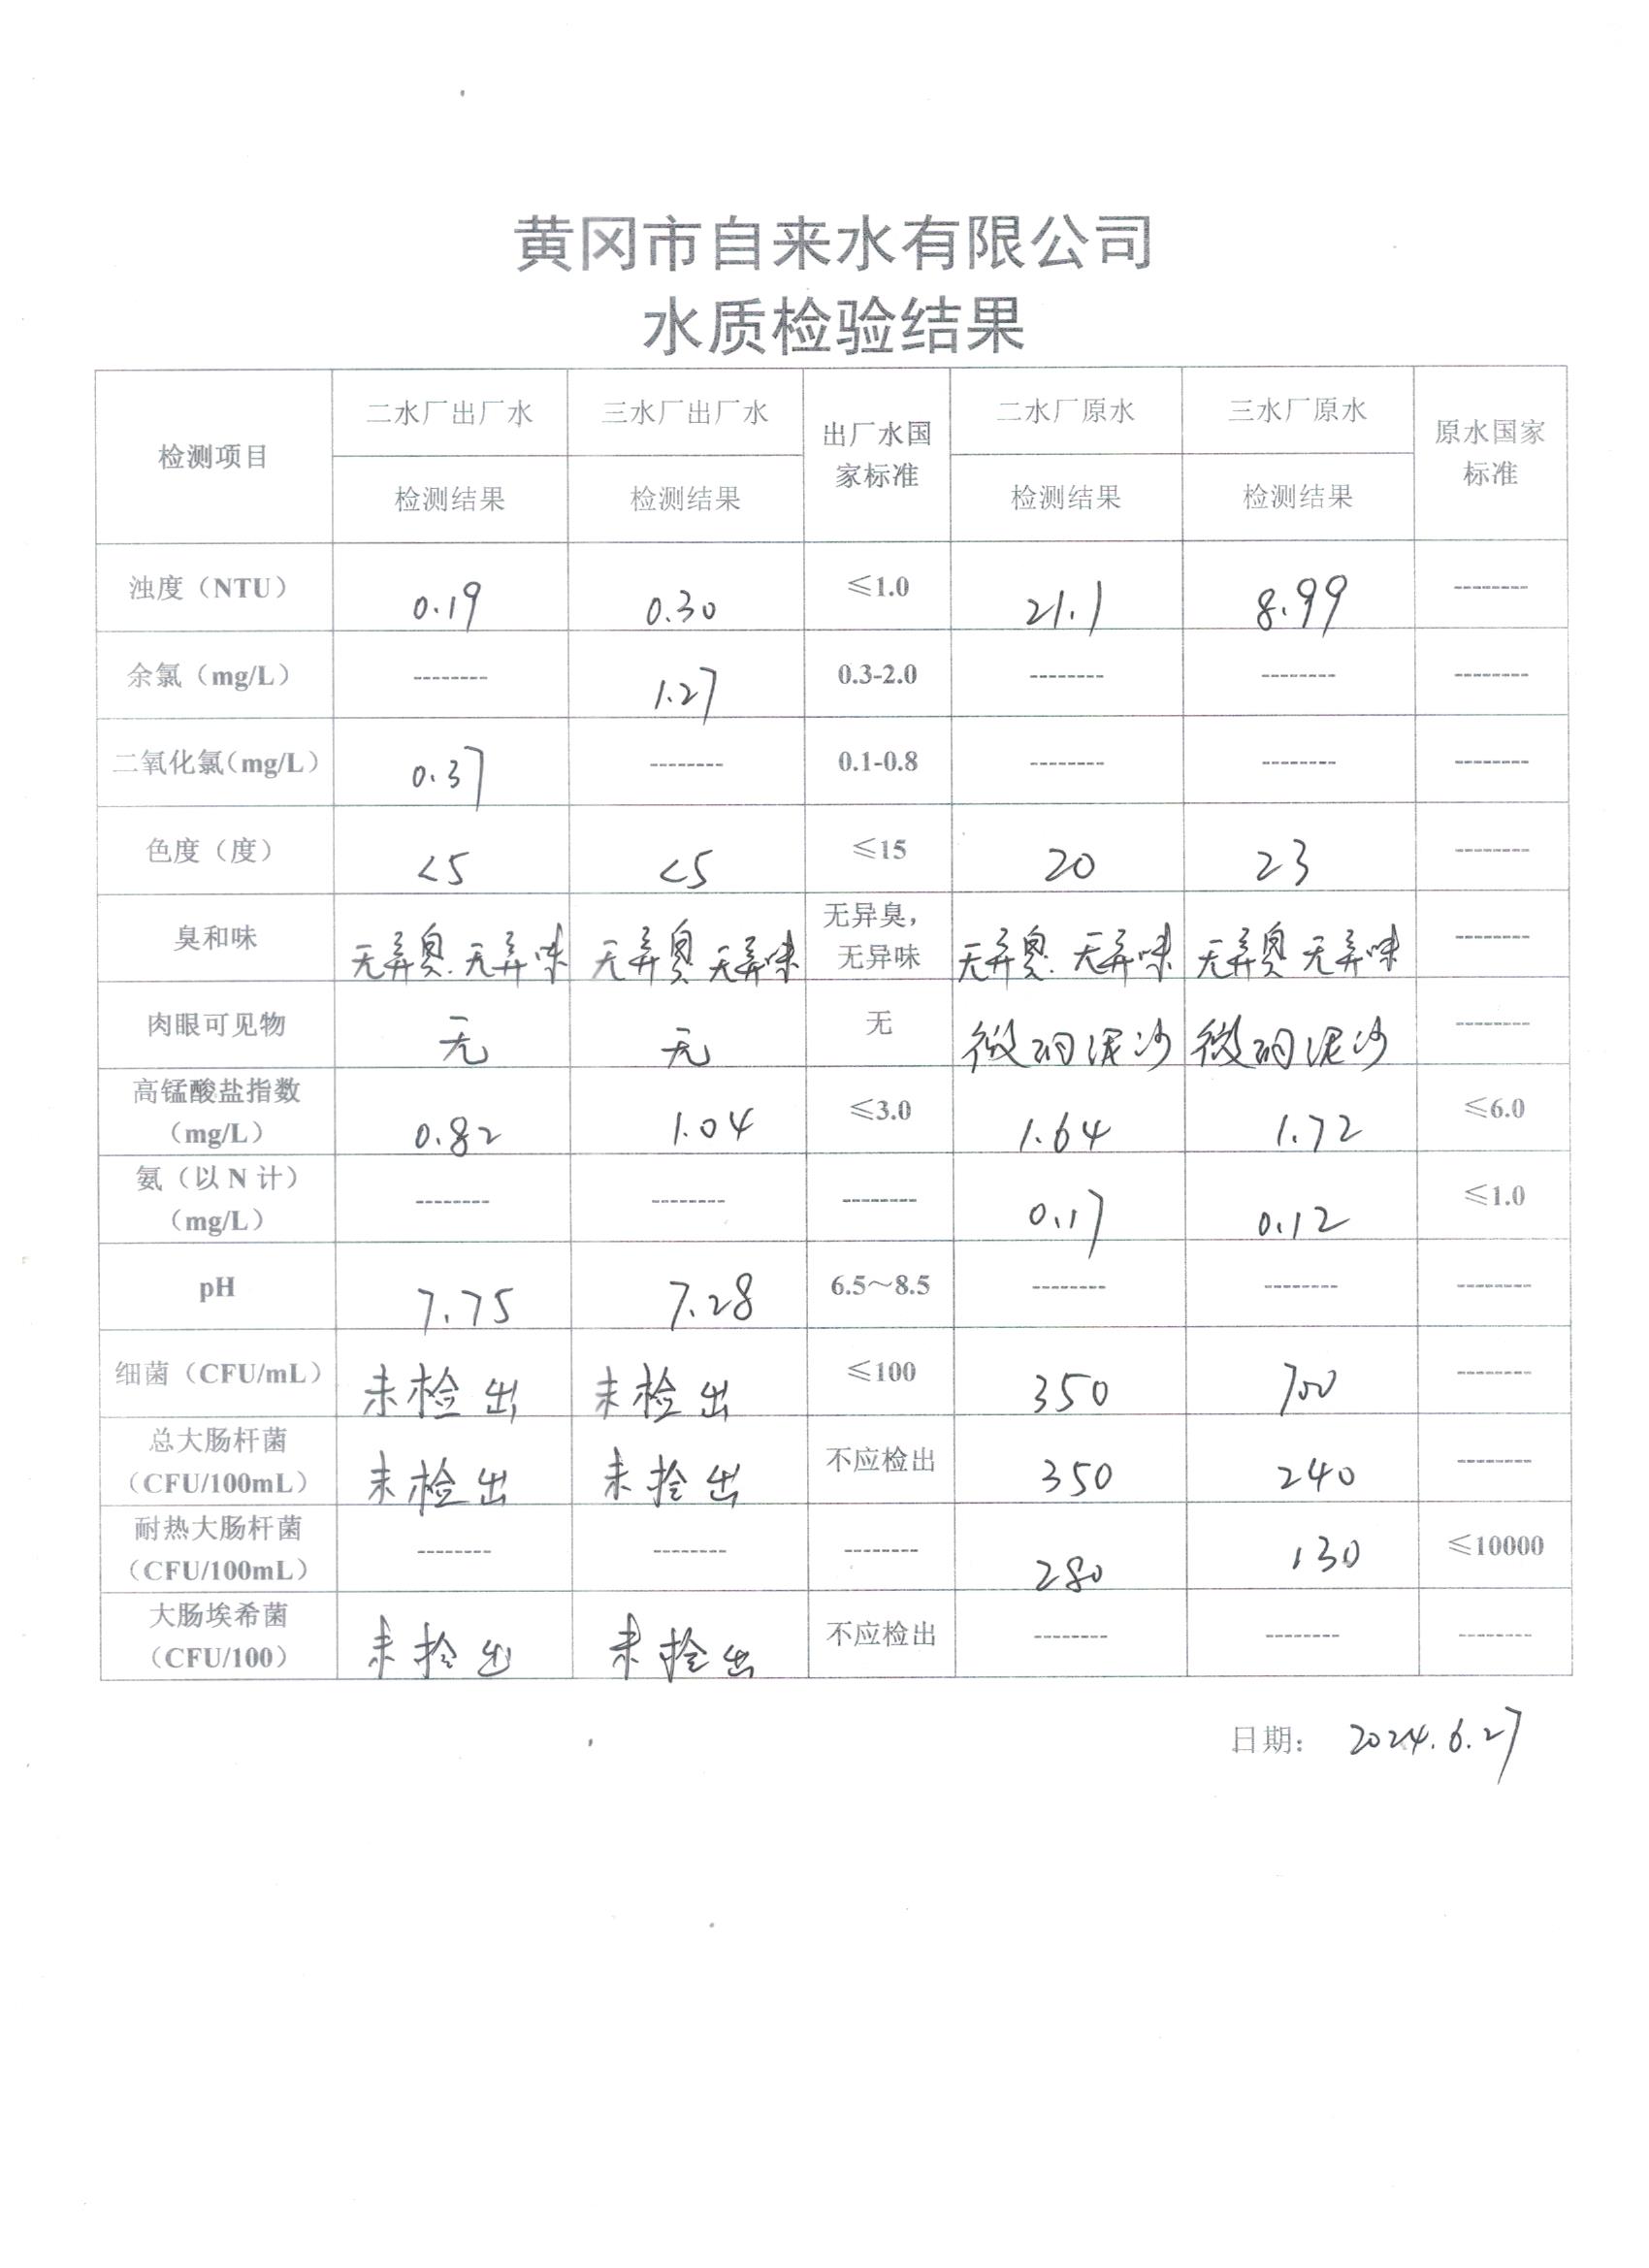 黄冈市自来水有限公司
水质检验结果
检测项目 二水厂出厂水 三水厂出厂水 出厂水国家标准 二水厂原水 三水厂原水 原水国家标准
检测结果 检测结果 检测结果 检测结果
浊度（NTU） 0.19 0.30 ≤1.0 21.1 8.99 --------
余氯（mg/L） -------- 1.27 0.3-2.0 -------- -------- --------
二氧化氯（mg/L） 0.37 -------- 0.1-0.8 -------- -------- --------
色度（度） <5 <5 ≤15 20 23 --------
臭和味 无异臭.无异味 无异臭 无异味 无异臭，无异味 无异臭.无异味 无异臭 无异味 --------
肉眼可见物 无 无 无 微细泥沙 微细泥沙 --------
高锰酸盐指数（mg/L） 0.82 1.04 ≤3.0 1.64 1.72 ≤6.0
氨（以 N 计）（mg/L） -------- -------- -------- 0.17 0.12 ≤1.0
pH 7.75 7.28 6.5～8.5 -------- -------- --------
细菌（CFU/mL） 未检出 未检出 ≤100 350 700 --------
总大肠杆菌（CFU/100mL） 未检出 未检出 不应检出 350 240 --------
耐热大肠杆菌（CFU/100mL） -------- -------- -------- 280 130 ≤10000
大肠埃希菌（CFU/100） 未检出 未检出 不应检出 -------- -------- --------
日期： 2024.6.27